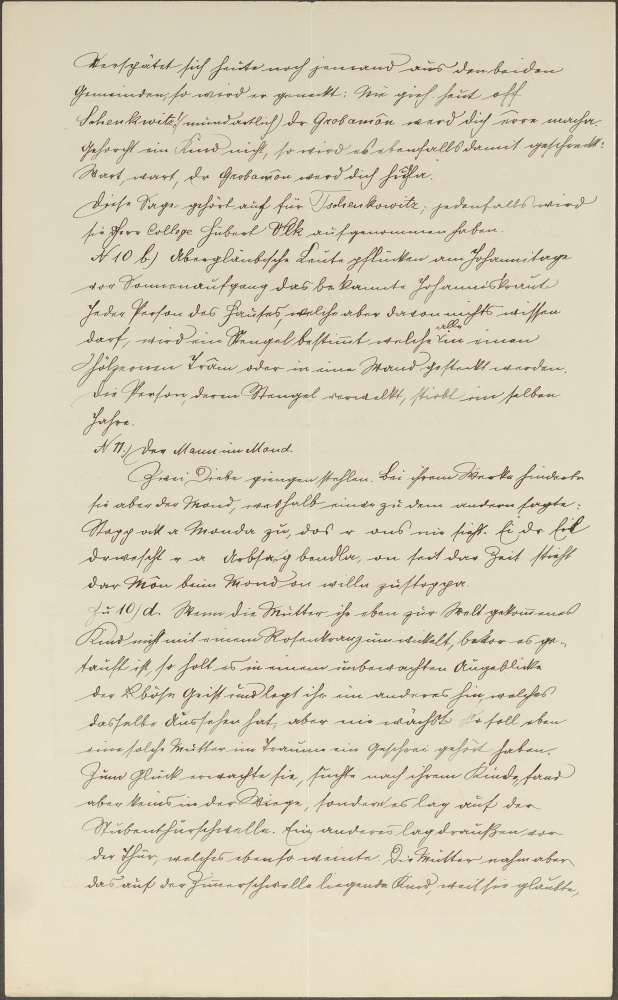 Verspätet sich heute noch jemand aus den beiden
Gemeinden, so wird er geneckt: Nie gieh heut off
Schenkwitz! (mundartlich) dr Grobamôn werd dich irre macha.
Gehorcht ein Kind nicht, so wird es ebenfalls damit geschreckt:
Wart, wart, dr Grobamôn werd dich huhla.
Diese Sage gehört auch für Tschenkowitz; jedenfalls wird
sie Herr College Hubert Vlk aufgenommen haben.
N 10 b) Abergläubische Leute pflücken am Johannitage
vor Sonnenaufgang das bekannte Johanniskraut
Jeder Person des Hauses, welche aber davon nichts wissen
darf, wird ein Stengel bestimmt welche alle in einen
hölzernen Träm oder in eine Wand gesteckt werden.
Die Person, deren Stengel verwelkt, stirbt im selben
Jahre.
N 11.) Der Mann im Mond.
Zwei Diebe giengen stehlen. Bei ihrem Werke hinderte
sie aber der Mond, weshalb einer zu dem andern sagte:
Stopp ock a Monda zu, dos r ons nie sieht. Ei dr Eil
drwescht r a Arbsag bendla, on seit dar Zeit stieht
dar Môn beim Mond on willn zustoppa.
Zu 10) d. Wenn die Mutter ihr eben zur Welt gekommenes
Kind nicht mit einem Rosenkranz umwickelt, bevor es ge-
tauft ist, so holt es in einem unbewachten Augenblicke
der böse Geist und legt ihr ein anderes hin, welches
dasselbe Aussehen hat, aber nie wächst. So soll eben
eine solche Mutter im Traume ein Geschrei gehört haben.
Zum Glück erwachte sie, suchte nach ihrem Kinde, fand
aber keins in der Wiege, sondern es lag auf der
Stubenthürschwelle. Ein anderes lag draußen vor
der Thür, welches ebenso weinte. Die Mutter nahm aber
das auf der Zimmerschwelle liegende Kind, weil sie glaubte,